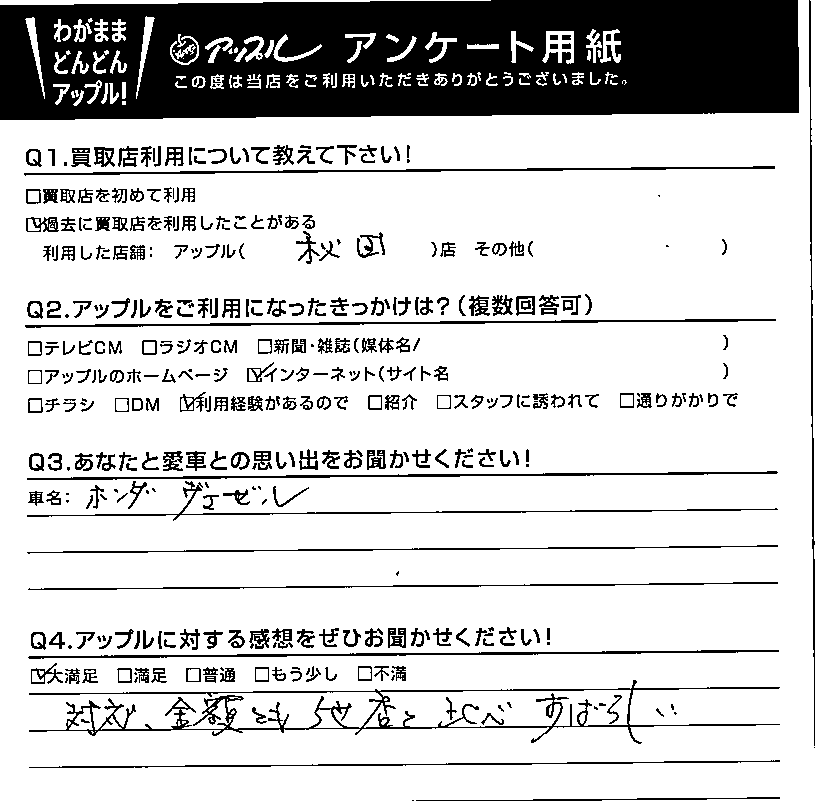 わがまま
どんどん
アップル!
アップル アンケート用紙
この度は当店をご利用いただきありがとうございました。
Q1.買取店利用について教えて下さい!
□買取店を初めて利用
☑過去に買取店を利用したことがある
利用した店舗: アップル( 秋田 )店 その他( )
Q2.アップルをご利用になったきっかけは?(複数回答可)
□テレビCM □ラジオCM □新聞・雑誌(媒体名/ )
□アップルのホームページ ☑インターネット(サイト名 )
□チラシ □DM ☑利用経験があるので □紹介 □スタッフに誘われて □通りがかりで
Q3.あなたと愛車との思い出をお聞かせください!
車名: ホンダ ヴェゼル
Q4.アップルに対する感想をぜひお聞かせください!
☑大満足 □満足 □普通 □もう少し □不満
対応、金額とも 他店と 比べ すばらしい